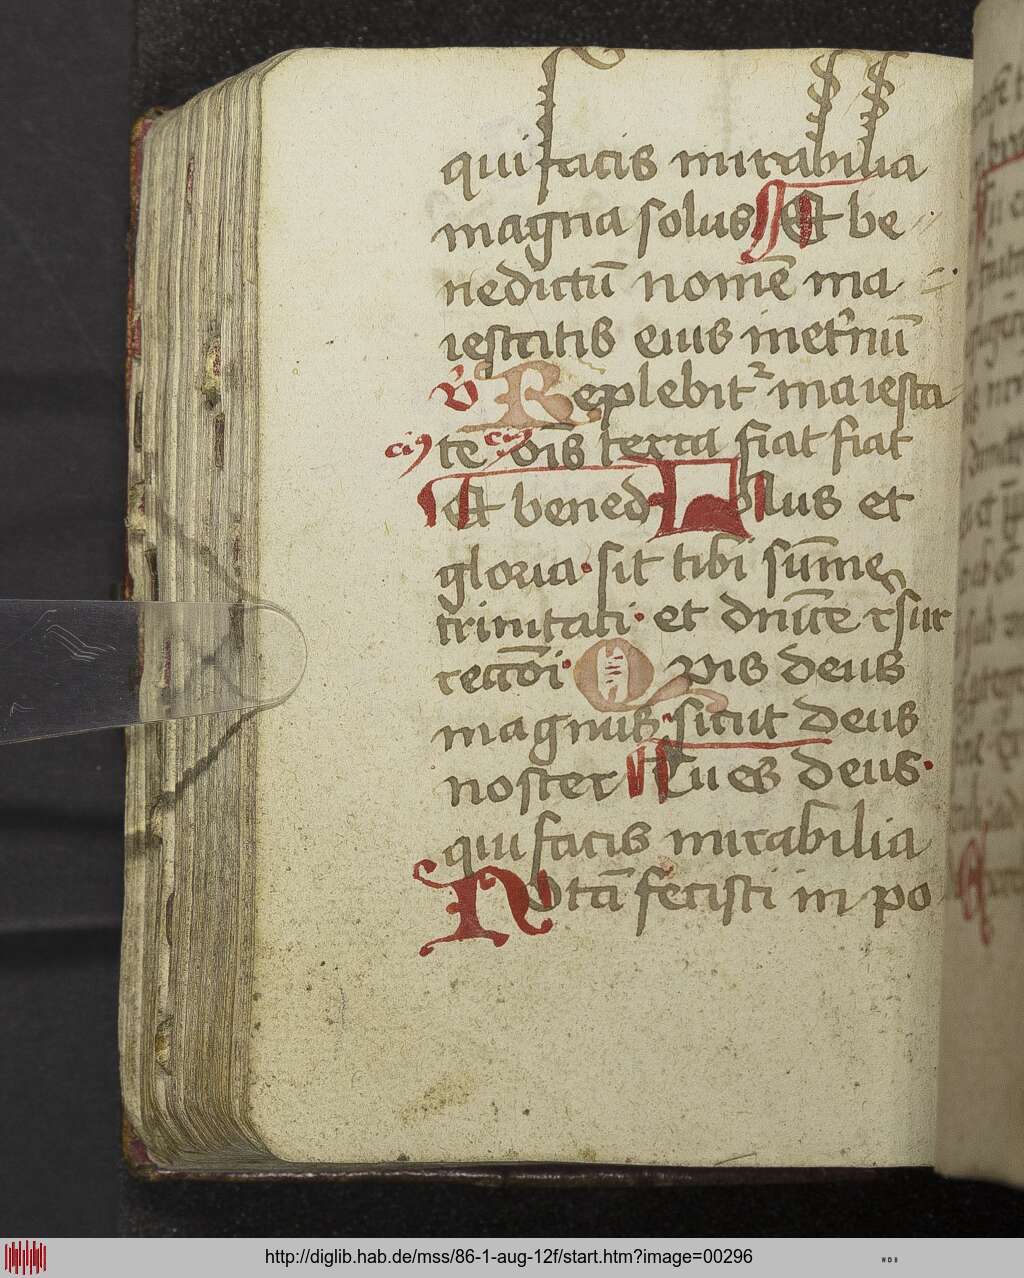 qui facis mirabilia
magna solus Et be
nedictū nomē ma
iestatis eius inet'nū
v̓ Replebit² maiesta
te eiꝯ oīs terra fiat fiat
Et bened Laus et
gloria · sit tibi sūme
trinitati · et
rectōi · Quis deus
magnus · sicut deus
noster Tu es deus ·
qui facis mirabilia
Notā fecisti in po
http://diglib.hab.de/mss/86-1-aug-12f/start.htm?image=00296